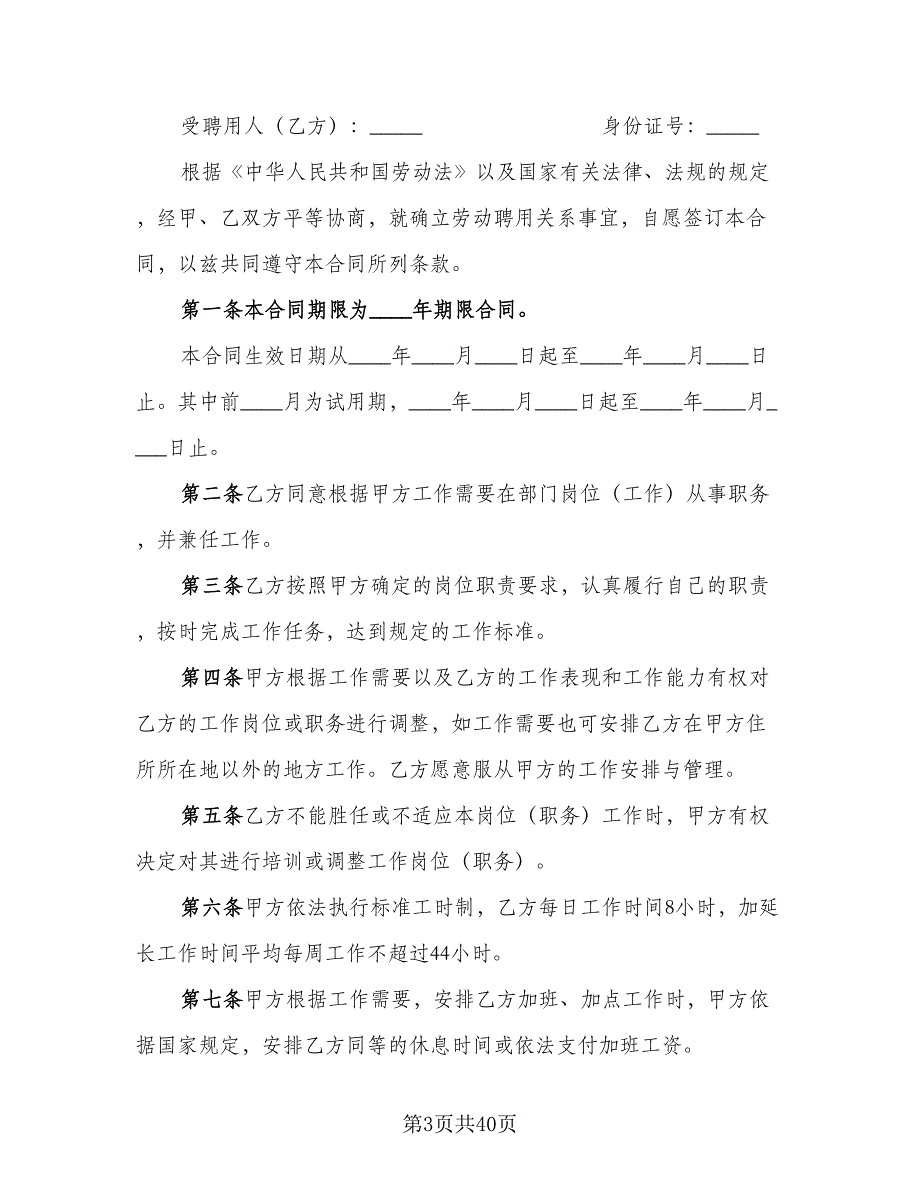 受聘用人（乙方）：_____ 身份证号：_____
根据《中华人民共和国劳动法》以及国家有关法律、法规的规定
，经甲、乙双方平等协商，就确立劳动聘用关系事宜，自愿签订本合
同，以兹共同遵守本合同所列条款。
第一条本合同期限为____年期限合同。
本合同生效日期从____年____月____日起至____年____月____日
止。其中前____月为试用期，____年____月____日起至____年____月_
___日止。
第二条乙方同意根据甲方工作需要在部门岗位（工作）从事职务
，并兼任工作。
第三条乙方按照甲方确定的岗位职责要求，认真履行自己的职责
，按时完成工作任务，达到规定的工作标准。
第四条甲方根据工作需要以及乙方的工作表现和工作能力有权对
乙方的工作岗位或职务进行调整，如工作需要也可安排乙方在甲方住
所所在地以外的地方工作。乙方愿意服从甲方的工作安排与管理。
第五条乙方不能胜任或不适应本岗位（职务）工作时，甲方有权
决定对其进行培训或调整工作岗位（职务）。
第六条甲方依法执行标准工时制，乙方每日工作时间8小时，加延
长工作时间平均每周工作不超过44小时。
第七条甲方根据工作需要，安排乙方加班、加点工作时，甲方依
据国家规定，安排乙方同等的休息时间或依法支付加班工资。
第3页共40页